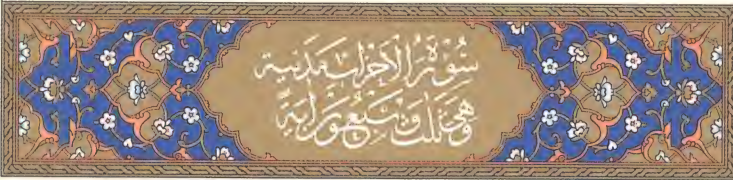 سُوْرَةُ الْأَحْزَابِ مَدَنِيَّة
وَهِيَ ثَلَاثٌ وَسَبْعُوْنَ اٰيَةً